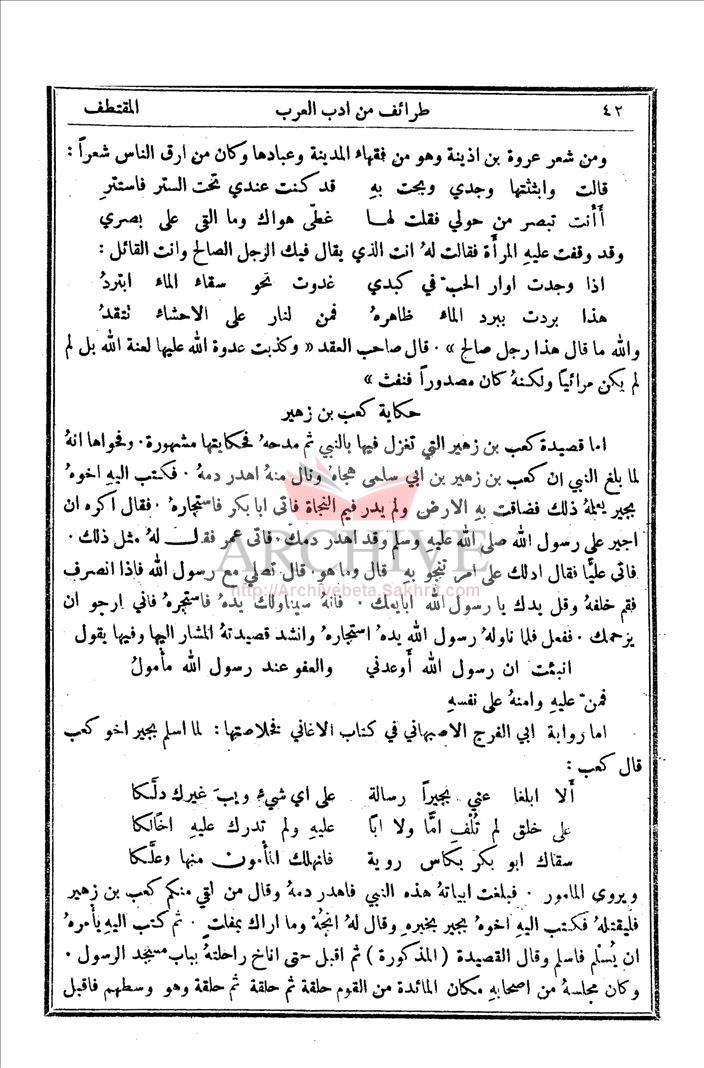 ٤٢ طرائف من ادب العرب المقتطف
ومن شعر عروة بن اذينة وهو من فقهاء المدينة وعبادها وكان من ارق الناس شعراً :
قالت وابثثتها وجدي وبحت بهِ قد كنت عندي تحت الستر فاستترِ
أَأنت تبصر من حولي فقلت لها غطّى هواك وما القى على بصري
وقد وقفت عليهِ المرأة فقالت لهُ انت الذي يقال فيك الرجل الصالح وانت القائل :
اذا وجدت اوار الحبّ في كبدي غدوت نحو سقاء الماء ابتردُ
هذا بردت ببرد الماء ظاهرهُ فمن لنار على الاحشاء نتقدُ
والله ما قال هذا رجل صالح » . قال صاحب العقد « وكذبت عدوة الله عليها لعنة الله بل لم
لم يكن مرائياً ولكنهُ كان مصدوراً فنفث »
حكاية كعب بن زهير
اما قصيدة كعب بن زهير التي تغزل فيها بالنبي ثم مدحهُ فحكايتها مشهورة . وفحواها انهُ
لما بلغ النبي ان كعب بن زهير بن ابي سلمى هجاهُ ونال منهُ اهدر دمهُ . فكتب اليهِ اخوهُ
بجير يعلمهُ ذلك فضاقت بهِ الارض ولم يدر فيم النجاة فاتى ابا بكر فاستجارهُ . فقال اكره ان
اجير على رسول الله صلى الله عليهِ وسلم وقد اهدر دمك . فاتى عمر فقال لهُ مثل ذلك .
فاتى عليّاً فقال ادلك على امر تنجو بهِ قال وما هو . قال تصلي مع رسول الله فاذا انصرف
فقم خلفهُ وقل يدك يا رسول الله ابايعك . فانهُ سيناولك يدهُ فاستجرهُ فاني ارجو ان
يرحمك . ففعل فلما ناولهُ رسول الله يدهُ استجارهُ وانشد قصيدتهُ المشار اليها وفيها يقول
انبئت ان رسول الله أوعدني والعفو عند رسول الله مأمولُ
فمنّ عليهِ وامنهُ على نفسهِ
اما رواية ابي الفرج الاصبهاني في كتاب الاغاني فخلاصتها : لما اسلم بجير اخو كعب
قال كعب :
أَلا ابلغا عني بجيراً رسالة على اي شيء ويبَ غيرك دلّكا
على خلق لم تُلفِ امَّا ولا ابًا عليهِ ولم تدرك عليهِ اخًا لكا
سقاك ابو بكر بكاس روية فانهلك المأمون منها وعلّكا
ويروى المامور . فبلغت ابياتهُ هذه النبي فاهدر دمهُ وقال من لقي منكم كعب بن زهير
فليقتلهُ فكتب اليهِ اخوهُ بجير بخبرهِ وقال لهُ انجهُ وما اراك بمفلت . ثم كتب اليهِ يأمرهُ
ان يُسلم فاسلم وقال القصيدة ( المذكورة ) ثم اقبل حتى اناخ راحلتهُ بباب مسجد الرسول .
وكان مجلسهُ من اصحابهِ مكان المائدة من القوم حلقة ثم حلقة ثم حلقة وهو وسطهم فاقبل
ARCHIVE
http://Archivebeta.Sakhrit.com